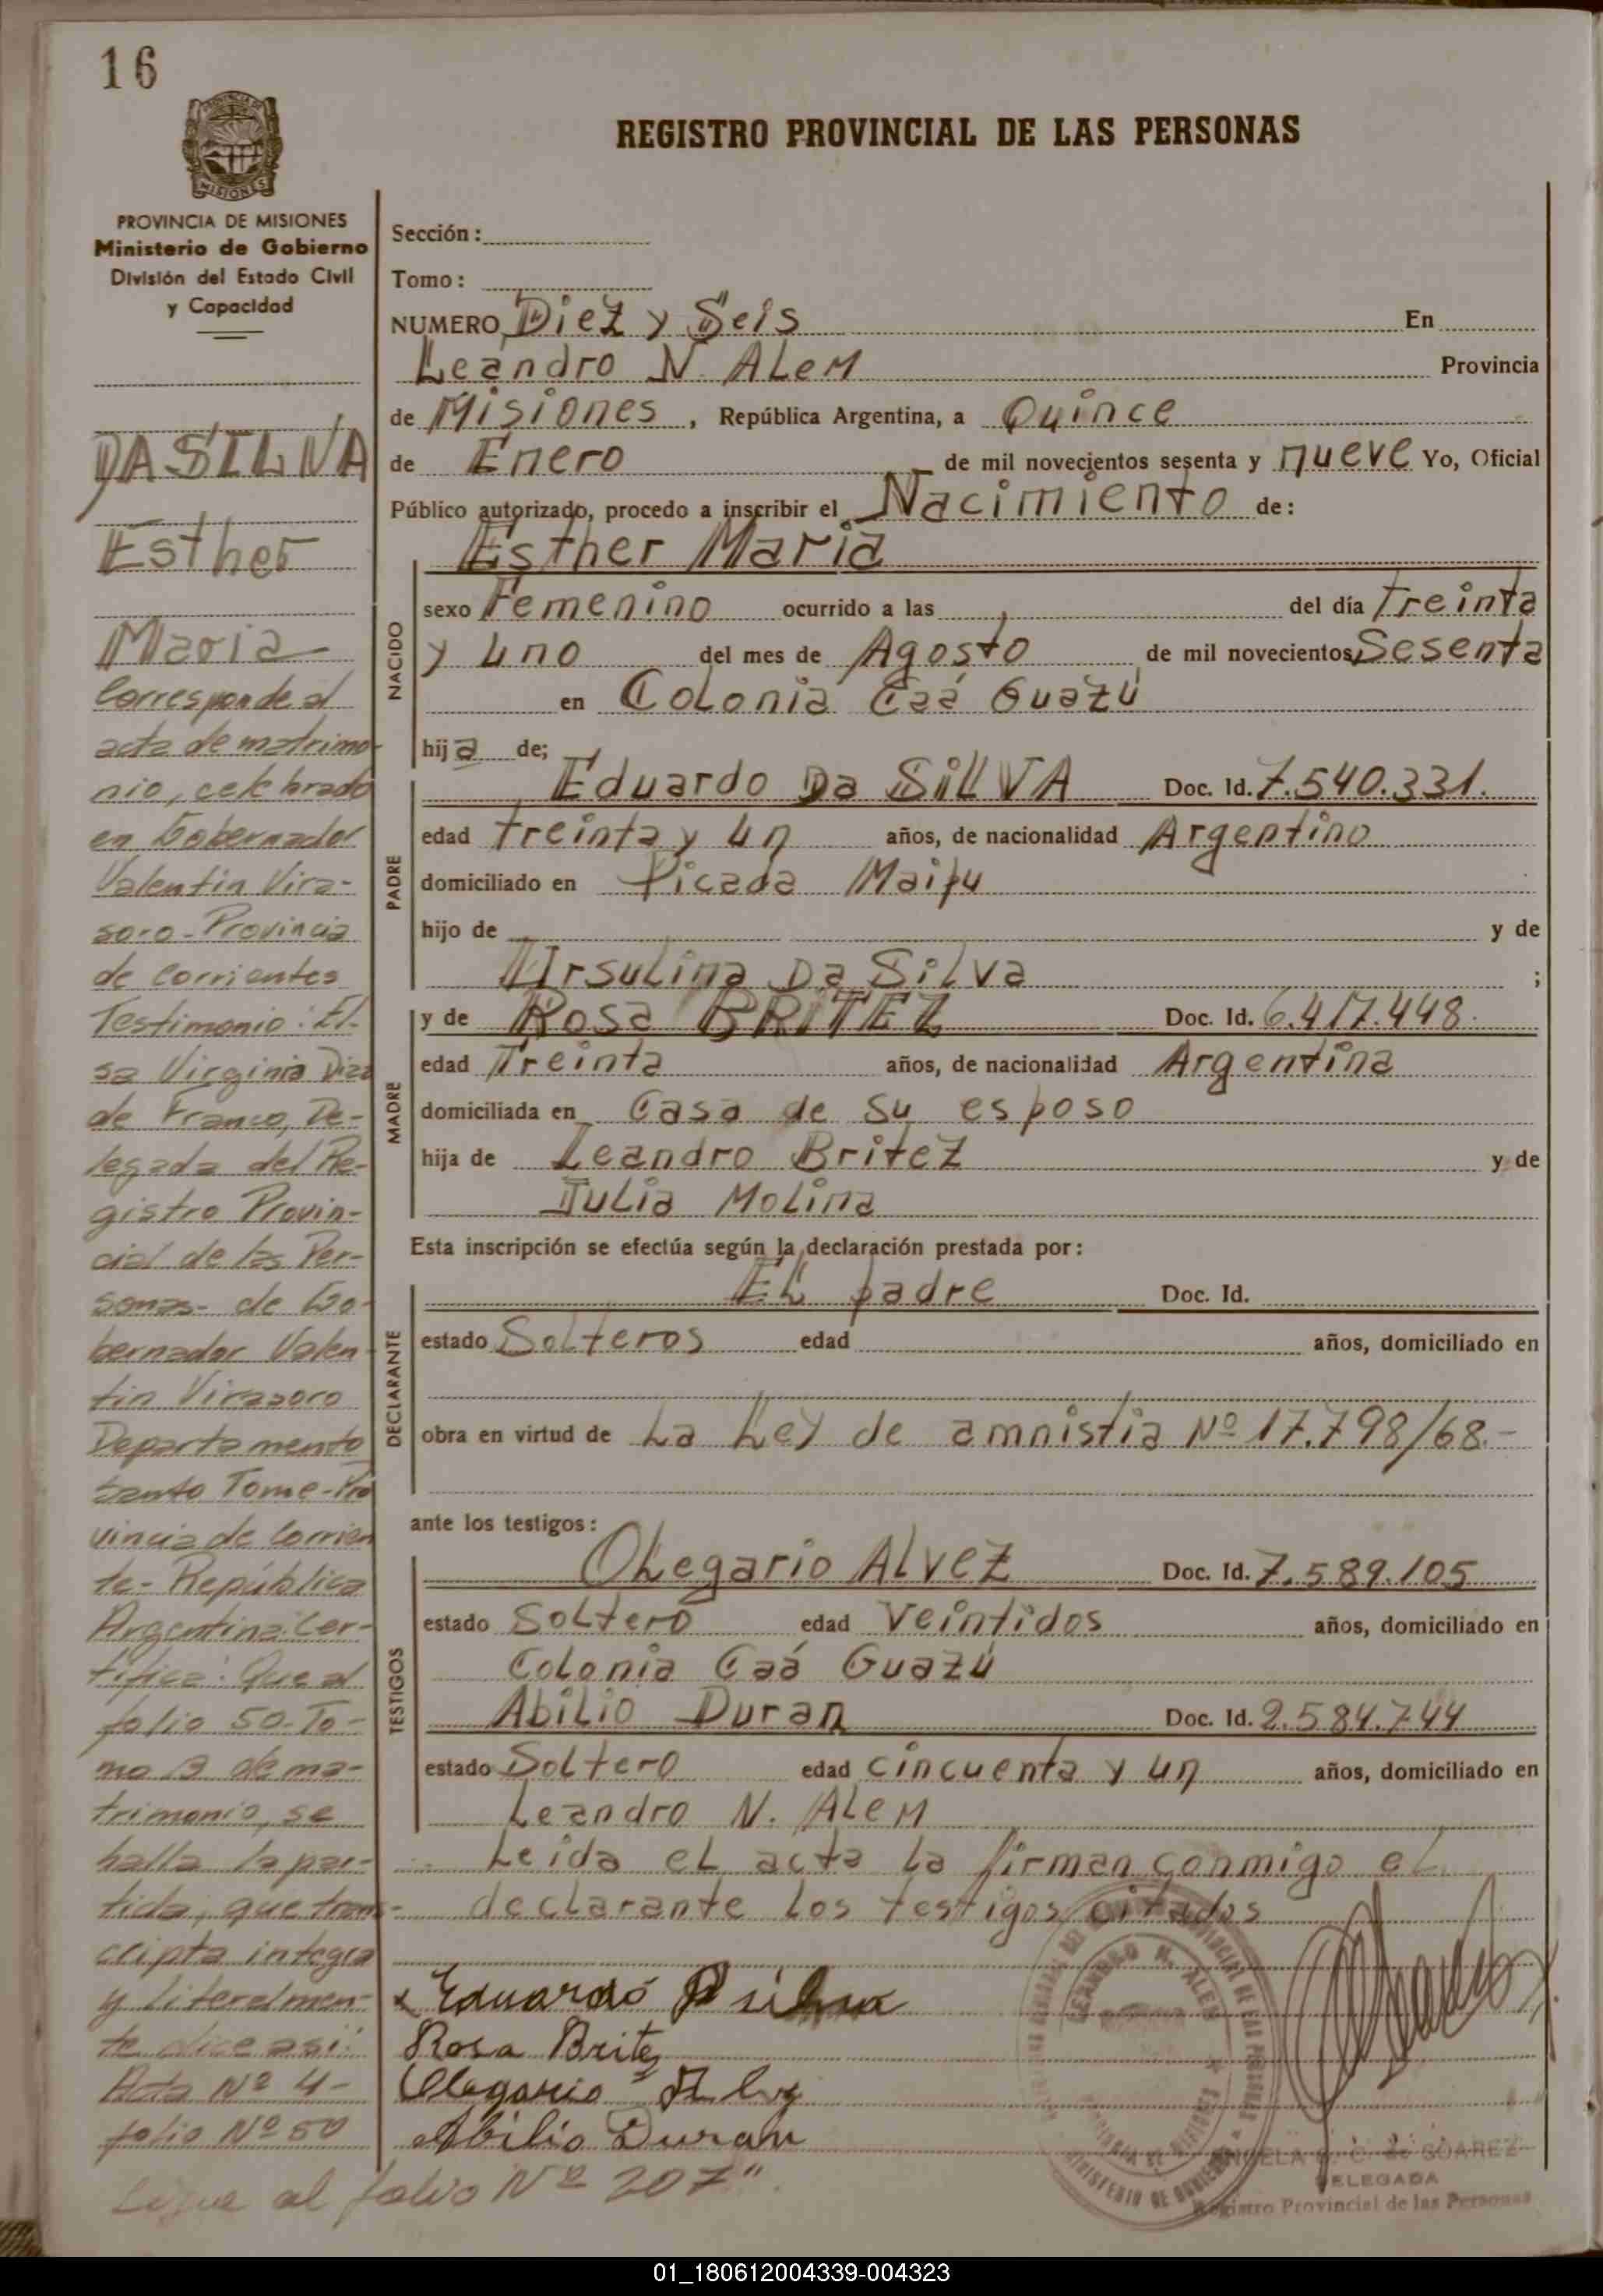 16
PROVINCIA DE
MISIONES
REGISTRO PROVINCIAL DE LAS PERSONAS
PROVINCIA DE MISIONES
Ministerio de Gobierno
División del Estado Civil
y Capacidad
DA SILVA
Esther
Maria
Corresponde al
acta de matrimo-
nio, celebrado
en Gobernador
Valentin Vira-
soro - Provincia
de Corrientes
Testimonio: El-
sa Virginia Diaz
de Franco, De-
legada del Re-
gistro Provin-
cial de las Per-
sonas - de Go-
bernador Valen
tin Virasoro
Departamento
Santo Tome - Pro
vincia de Corrien
te - República
Argentina: Cer-
tifica: Que al
folio 50 - To-
mo de ma-
trimonio, se
halla la par-
tida, que trans-
cripta integra
y literalmen-
te dice asi:
Acta Nº 4 -
folio Nº 50
Sigue al folio Nº 207"
Sección:
Tomo:
NUMERO Diez y Seis En
Leandro N. ALeM Provincia
de Misiones, República Argentina, a Quince
de Enero de mil novecientos sesenta y nueve Yo, Oficial
Público autorizado, procedo a inscribir el Nacimiento de:
Esther Maria
NACIDO
sexo Femenino ocurrido a las del día treinta
y uno del mes de Agosto de mil novecientos Sesenta
en Colonia Caá Guazú
hija de;
PADRE
Eduardo Da SilVA Doc. Id. 7.540.331.
edad treinta y un años, de nacionalidad Argentino
domiciliado en Picada Maipu
hijo de y de
Ursulina Da Silva ;
MADRE
y de Rosa BRITEZ Doc. Id. 6.417.448.
edad Treinta años, de nacionalidad Argentina
domiciliada en Casa de su esposo
hija de Leandro Britez y de
Julia Molina
Esta inscripción se efectúa según la declaración prestada por:
DECLARANTE
EL padre Doc. Id.
estado Solteros edad años, domiciliado en
obra en virtud de La Ley de amnistia Nº 17.798/68.-
ante los testigos:
TESTIGOS
OLegario ALvez Doc. Id. 7.589.105
estado Soltero edad Veintidos años, domiciliado en
Colonia Caá Guazú
Abilio Duran Doc. Id. 2.584.744
estado Soltero edad cincuenta y un años, domiciliado en
Leandro N. ALeM
Leida eL acta La firman conmigo eL
declarante Los testigos citados
x Eduardo D silva
Rosa Britez
Olegario Alvez
Abilio Duran
LEANDRO N. ALEM
PROVINCIA DE MISIONES
MINISTERIO DE GOBIERNO
ANGELA C. de SUAREZ
DELEGADA
Registro Provincial de las Personas
01_180612004339-004323